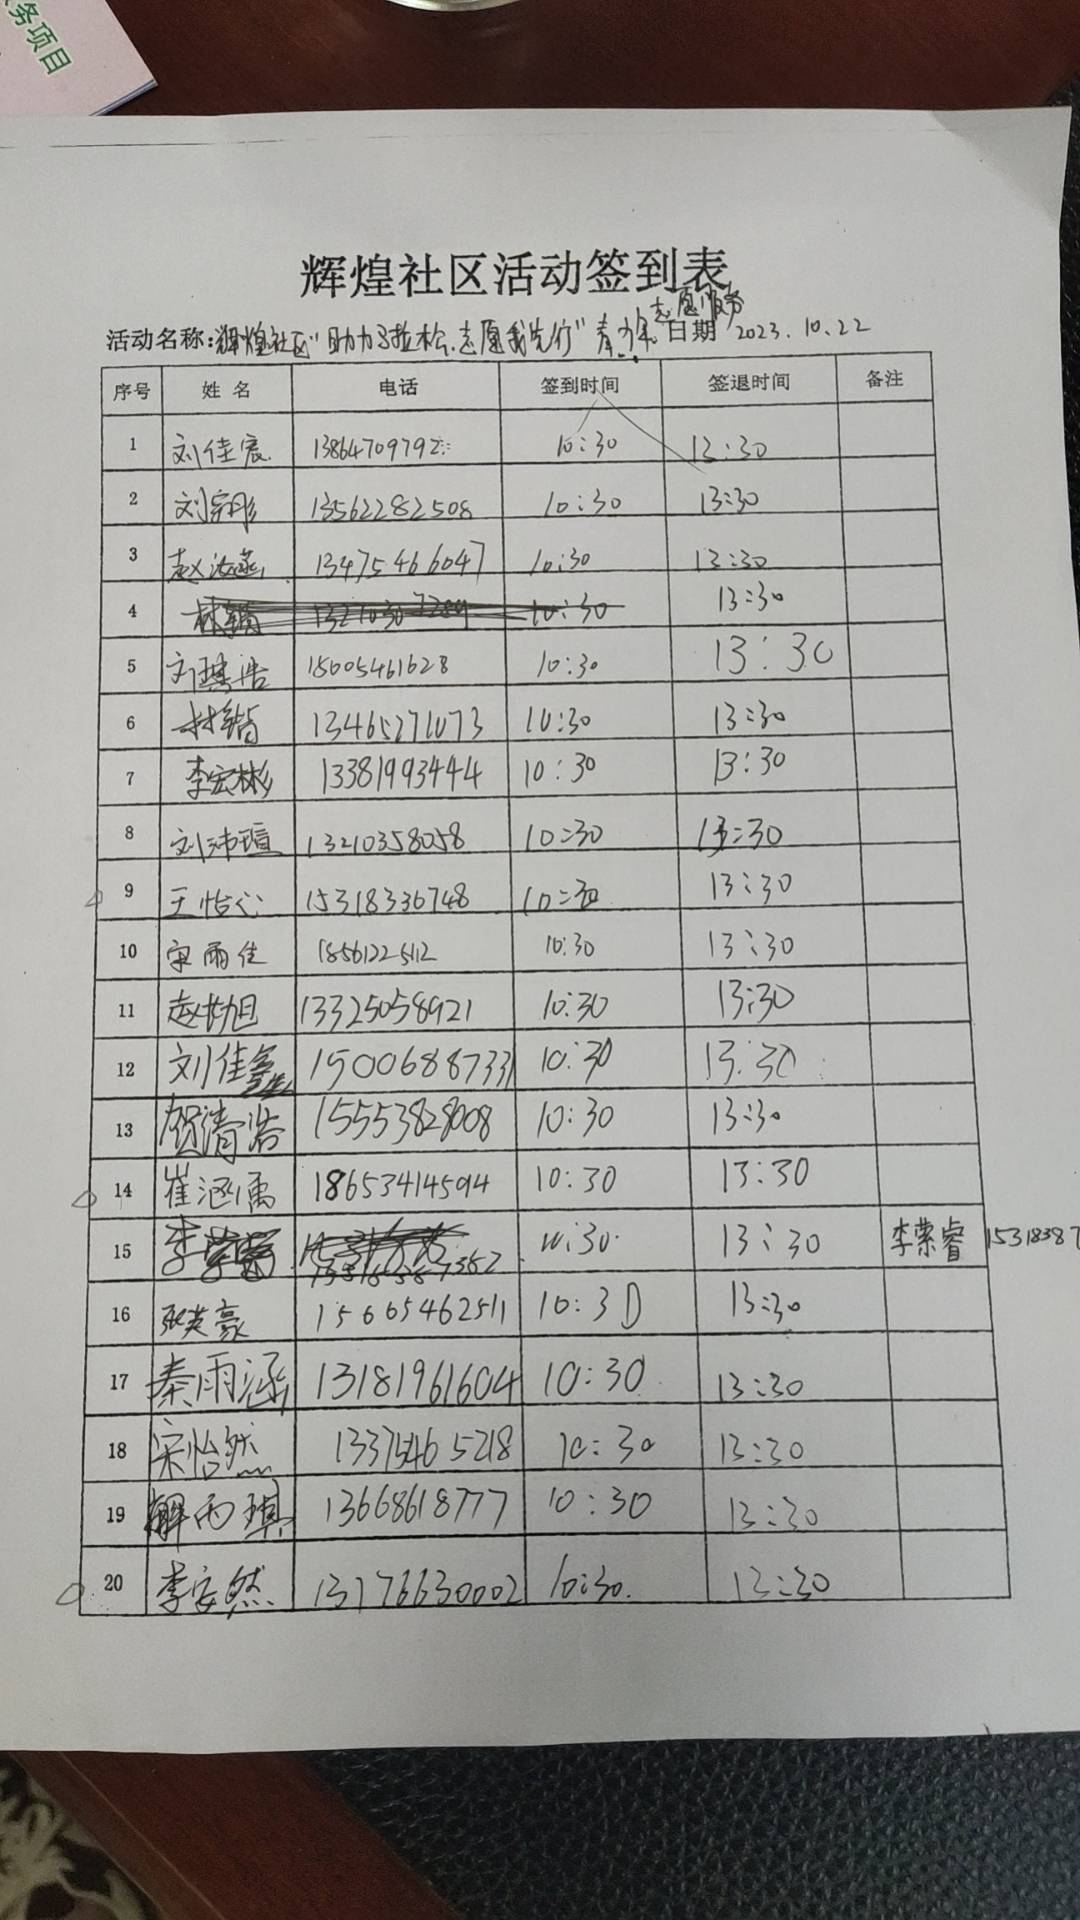 务项目
辉煌社区活动签到表
志愿服务
活动名称:辉煌社区"助力马拉松,志愿我先行"青少年 日期 2023.10.22
序号 姓名 电话 签到时间 签退时间 备注
1 刘佳宸 13864709792 10:30 13:30
2 刘宗彤 13562282508 10:30 13:30
3 赵汝涵 13475466047 10:30 13:30
4 10:30 13:30
5 刘琪浩 15605461628 10:30 13:30
6 13465271073 10:30 13:30
7 李宏彬 13381993444 10:30 13:30
8 刘沛瑄 13210358058 10:30 13:30
9 王怡心 15318336748 10:30 13:30
10 宋雨佳 10:30 13:30
11 13325058921 10:30 13:30
12 刘佳鑫 15006887331 10:30 13:30
13 贺清浩 15553828008 10:30 13:30
14 崔涵禹 18653414594 10:30 13:30
15 10:30 13:30 李荣睿 15318387
16 张英豪 15605462511 10:30 13:30
17 秦雨涵 13181961604 10:30 13:30
18 宋怡然 13375465218 10:30 13:30
19 解雨琪 13668618777 10:30 13:30
20 李安然 13176630002 10:30 13:30